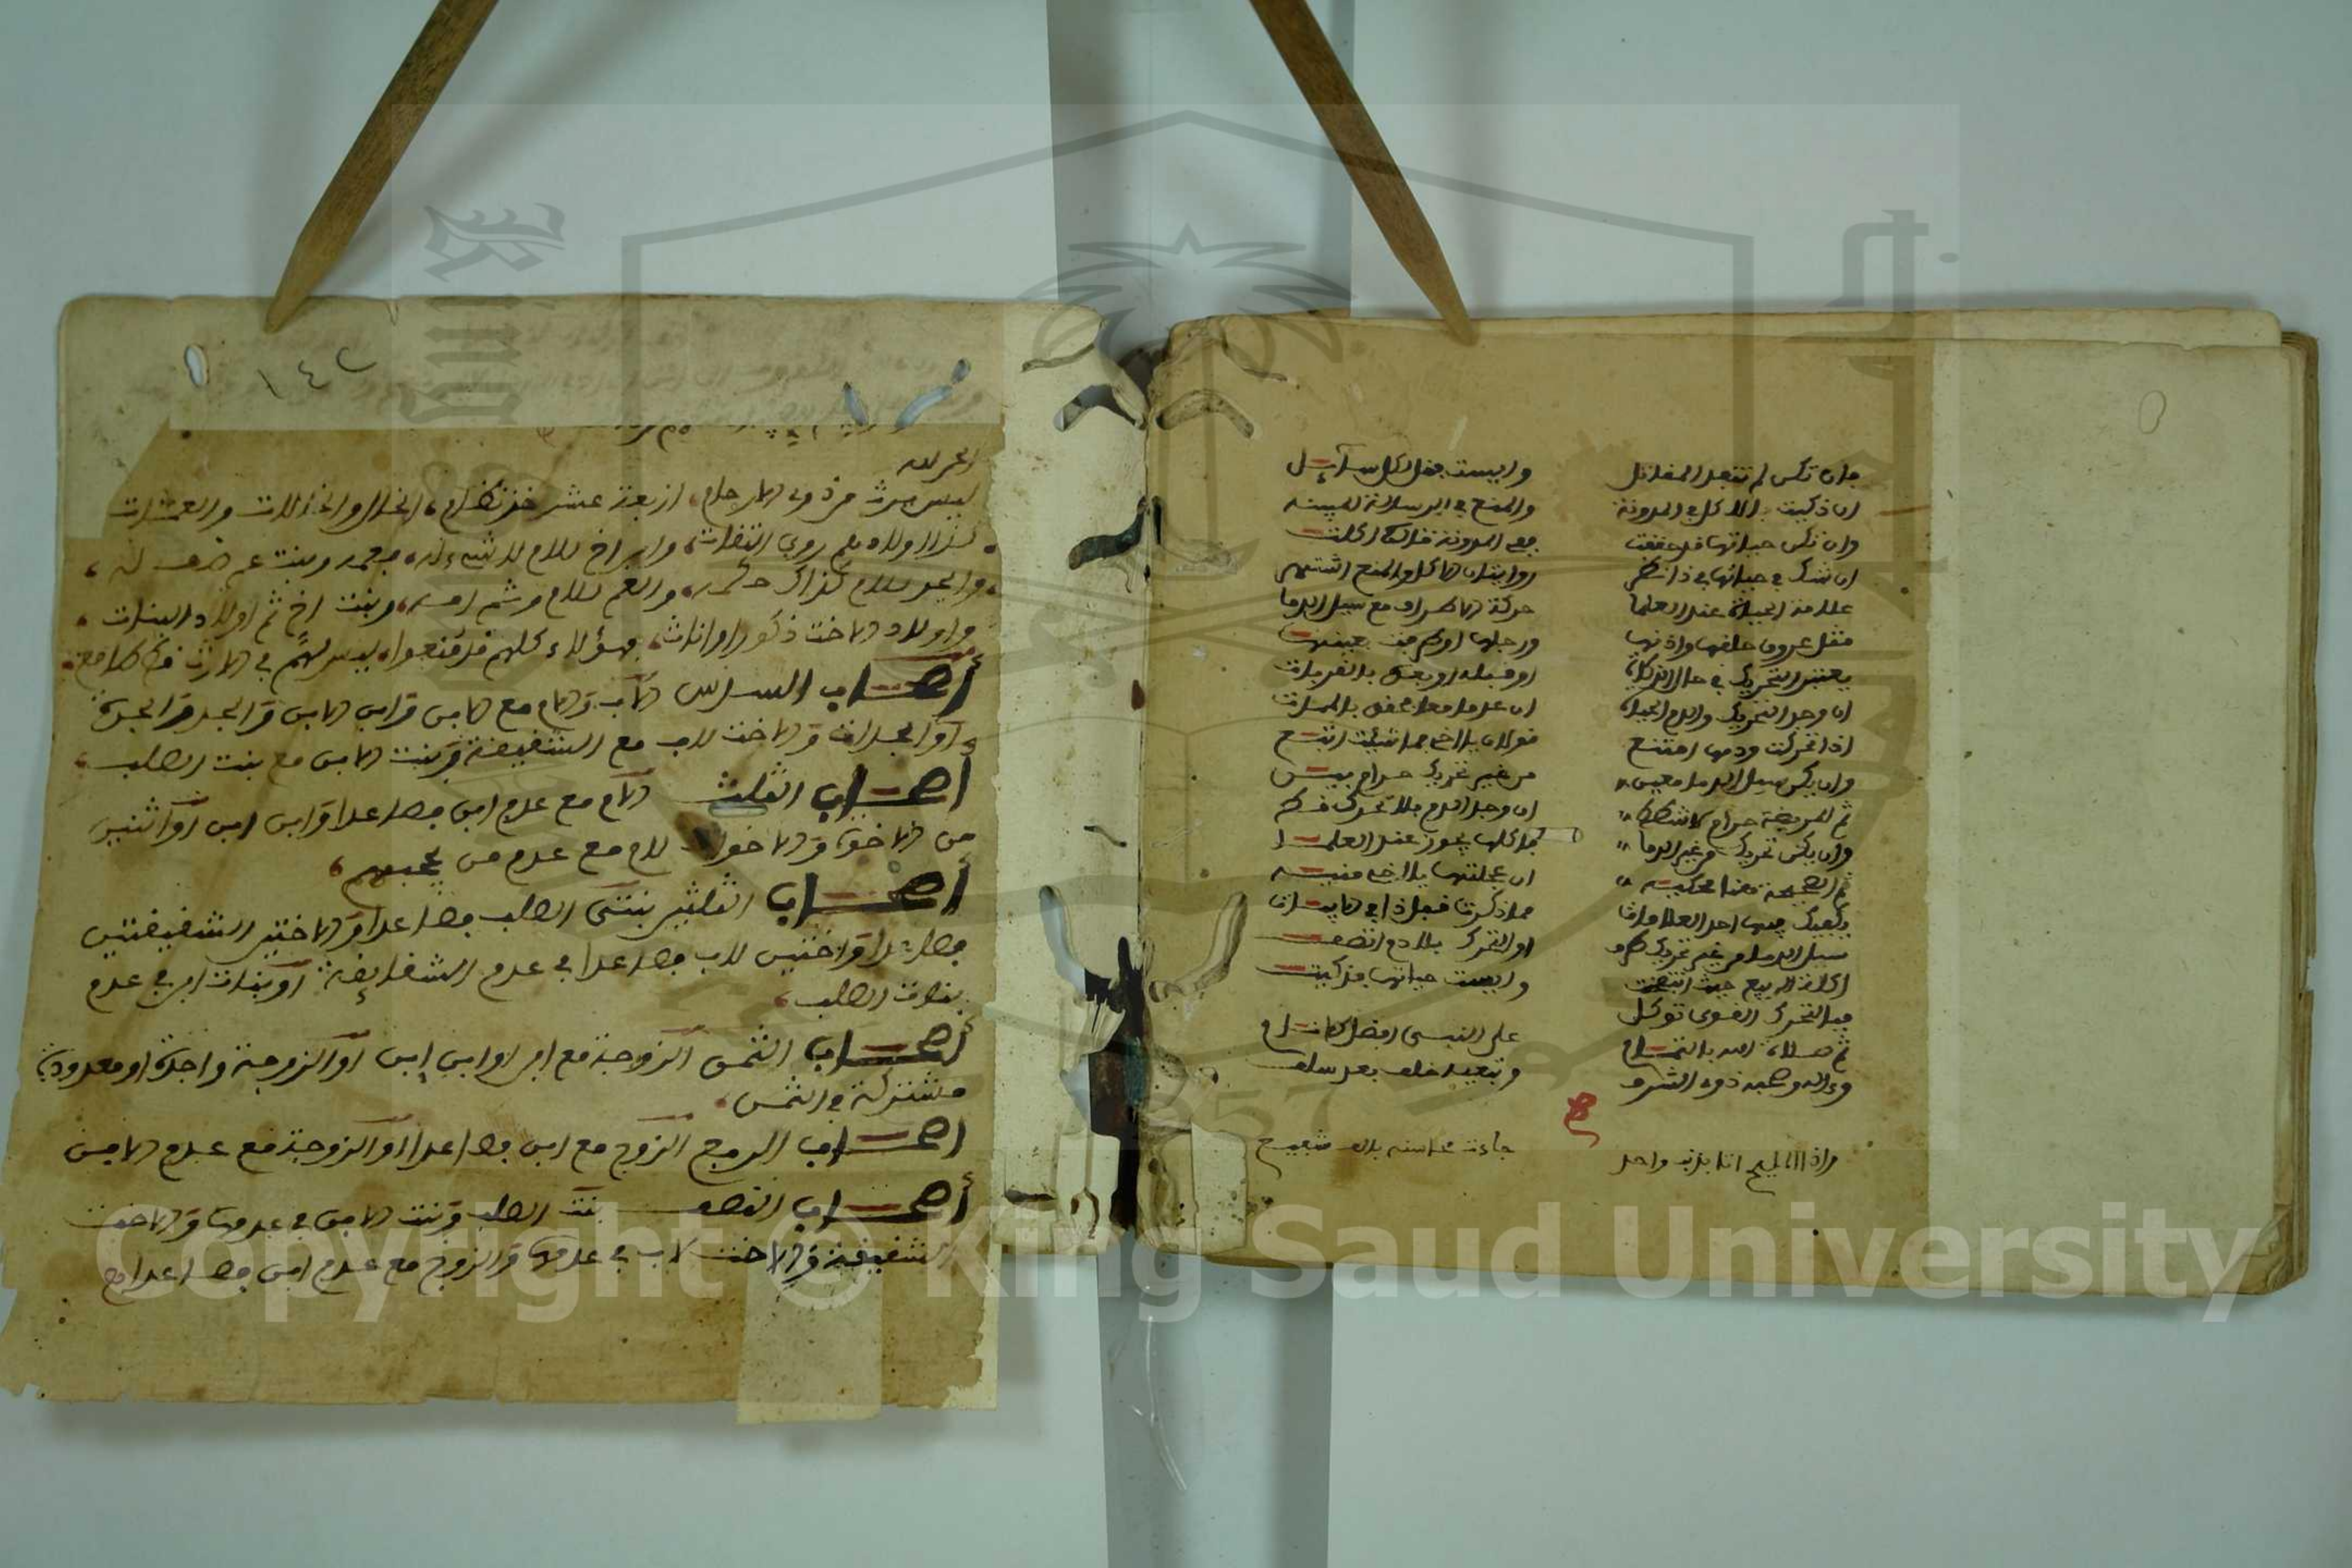 فان تكن لم تنفذ المقاتل وايست فقل لكل سائل
ان ذكيت بالاكل في المدونة والمنع في الرسالة المبينه
وان تكن حياتها قد حققت ففي المدونة قالت اكلت
ان شك في حياتها في ذا نظر روايتان الاكل والمنع اشتهر
علامة الحياة عند العلما حركة الاطراف مع سيل الدما
مثل عروق حلقها واذنها ورجلها او طرفت بعينها
يعتبر التحريك في حال الذكاة او قبله او بعد بالقربات
ان وجد التحريك والدم الحياة ان عدما معا تحقق بالممات
اذا تحركت ودمها امتنع قولان يا اخي فما شئت اتبع
وان يكن سيل الدما معين من غير تحريك حرام بين
ثم المريضة حرام ان وجد الدم بلا تحرك
وان يكن تحريك من غير الدما فاكلها يجوز عند العلما
ثم الصحيحة ان عجلتها يا اخي
يكفيك فيها احد العلامات مما ذكرنا قبل ذا في الابيات
سيل الدما من غير تحريك او التحرك بلا دم اتصف
اكلة الربيع حيث انتفخت وايست حياتها فذكيت
فبالتحرك القوى توكل
ثم صلاة الله بالتمام على النبي افضل الانام
وءاله وصحبه ذوي الشرف وتبعيه خلف بعد سلف
واذا المليح اتا بذنب واحد جاءت محاسنه بالف شفيع
١٤٢
الحمد لله
ليس يرث من ذوي الارحام اربعة عشر خذ نظام الخال والخالات والعمات
كذا اولادهم روى الثقات وابن اخ للام لا شيء له فعمه وبنت عم
والجد للام كذاك حكمه والعم للام وثم امه وبنت اخ ثم اولاد البنات
واولاد الاخت ذكورا واناث فهؤلاء كلهم قد منعوا ليس لهم في الارث قط
أصحاب السدس الاب والام مع الابن وابن الابن والجد والجدة
او الجدات والاخت للاب مع الشقيقة وبنت الابن مع بنت الصلب
أصحاب الثلث الام مع عدم ابن فصاعدا وابن ابن او اثنين
من الاخوة والاخوة للام مع عدم من يحجبهم
أصحاب الثلثين بنتى الصلب فصاعدا والاختين الشقيقتين
فصاعدا واختين للاب فصاعدا في عدم الشقايقة او بنات ابن في عدم
بنات الصلب
أصحاب الثمن الزوجة مع ابن او ابن ابن او الزوجة واحدة او معدودة
مشتركة في الثمن
اصحاب الربع الزوج مع ابن فصاعدا او الزوجة مع عدم الابن
أصحاب النصف بنت الصلب وبنت الابن في عدمها والاخت
الشقيقة والاخت لاب في عدمها والزوج مع عدم ابن فصاعدا
Copyright © King Saud University
1957